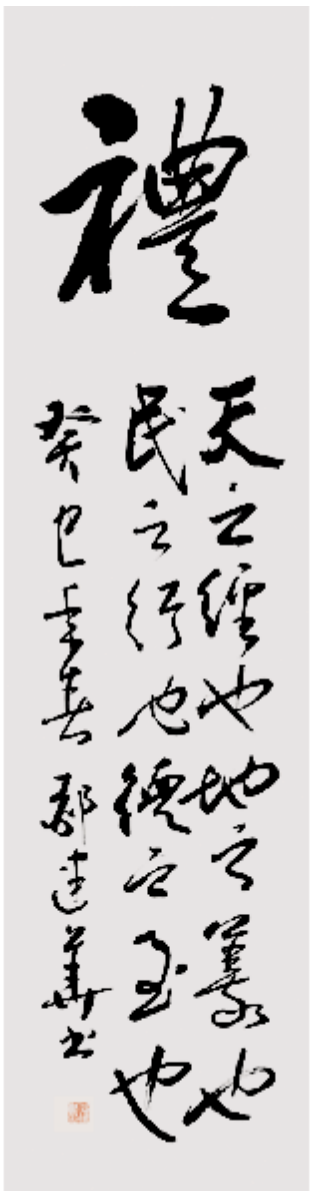 禮
天之經也地之義也
民之行也德之至也
癸巳春華書